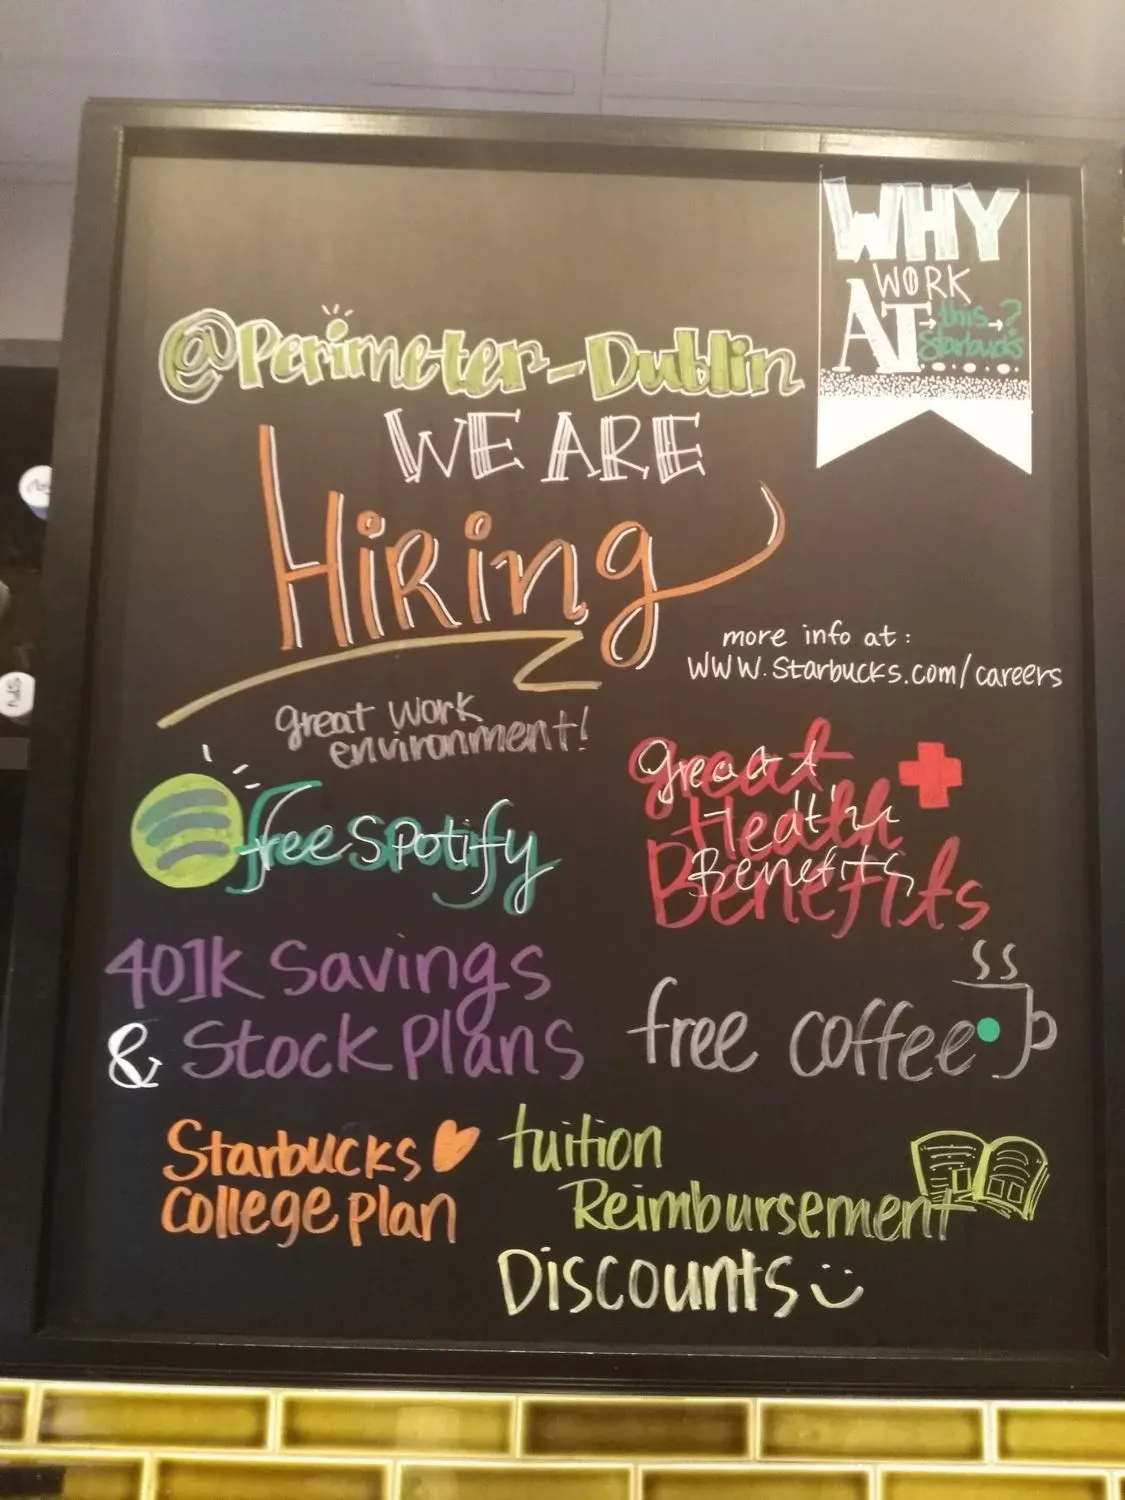 WHY
WORK
AT
this
Starbucks
?
@Perimeter-Dublin
WE ARE
HiRing
more info at:
WWW.Starbucks.com/careers
great work
environment!
free Spotify
Great
Health
Benefits
401k Savings
& Stock Plans
free coffee
Starbucks
College plan
tuition
Reimbursement
Discounts